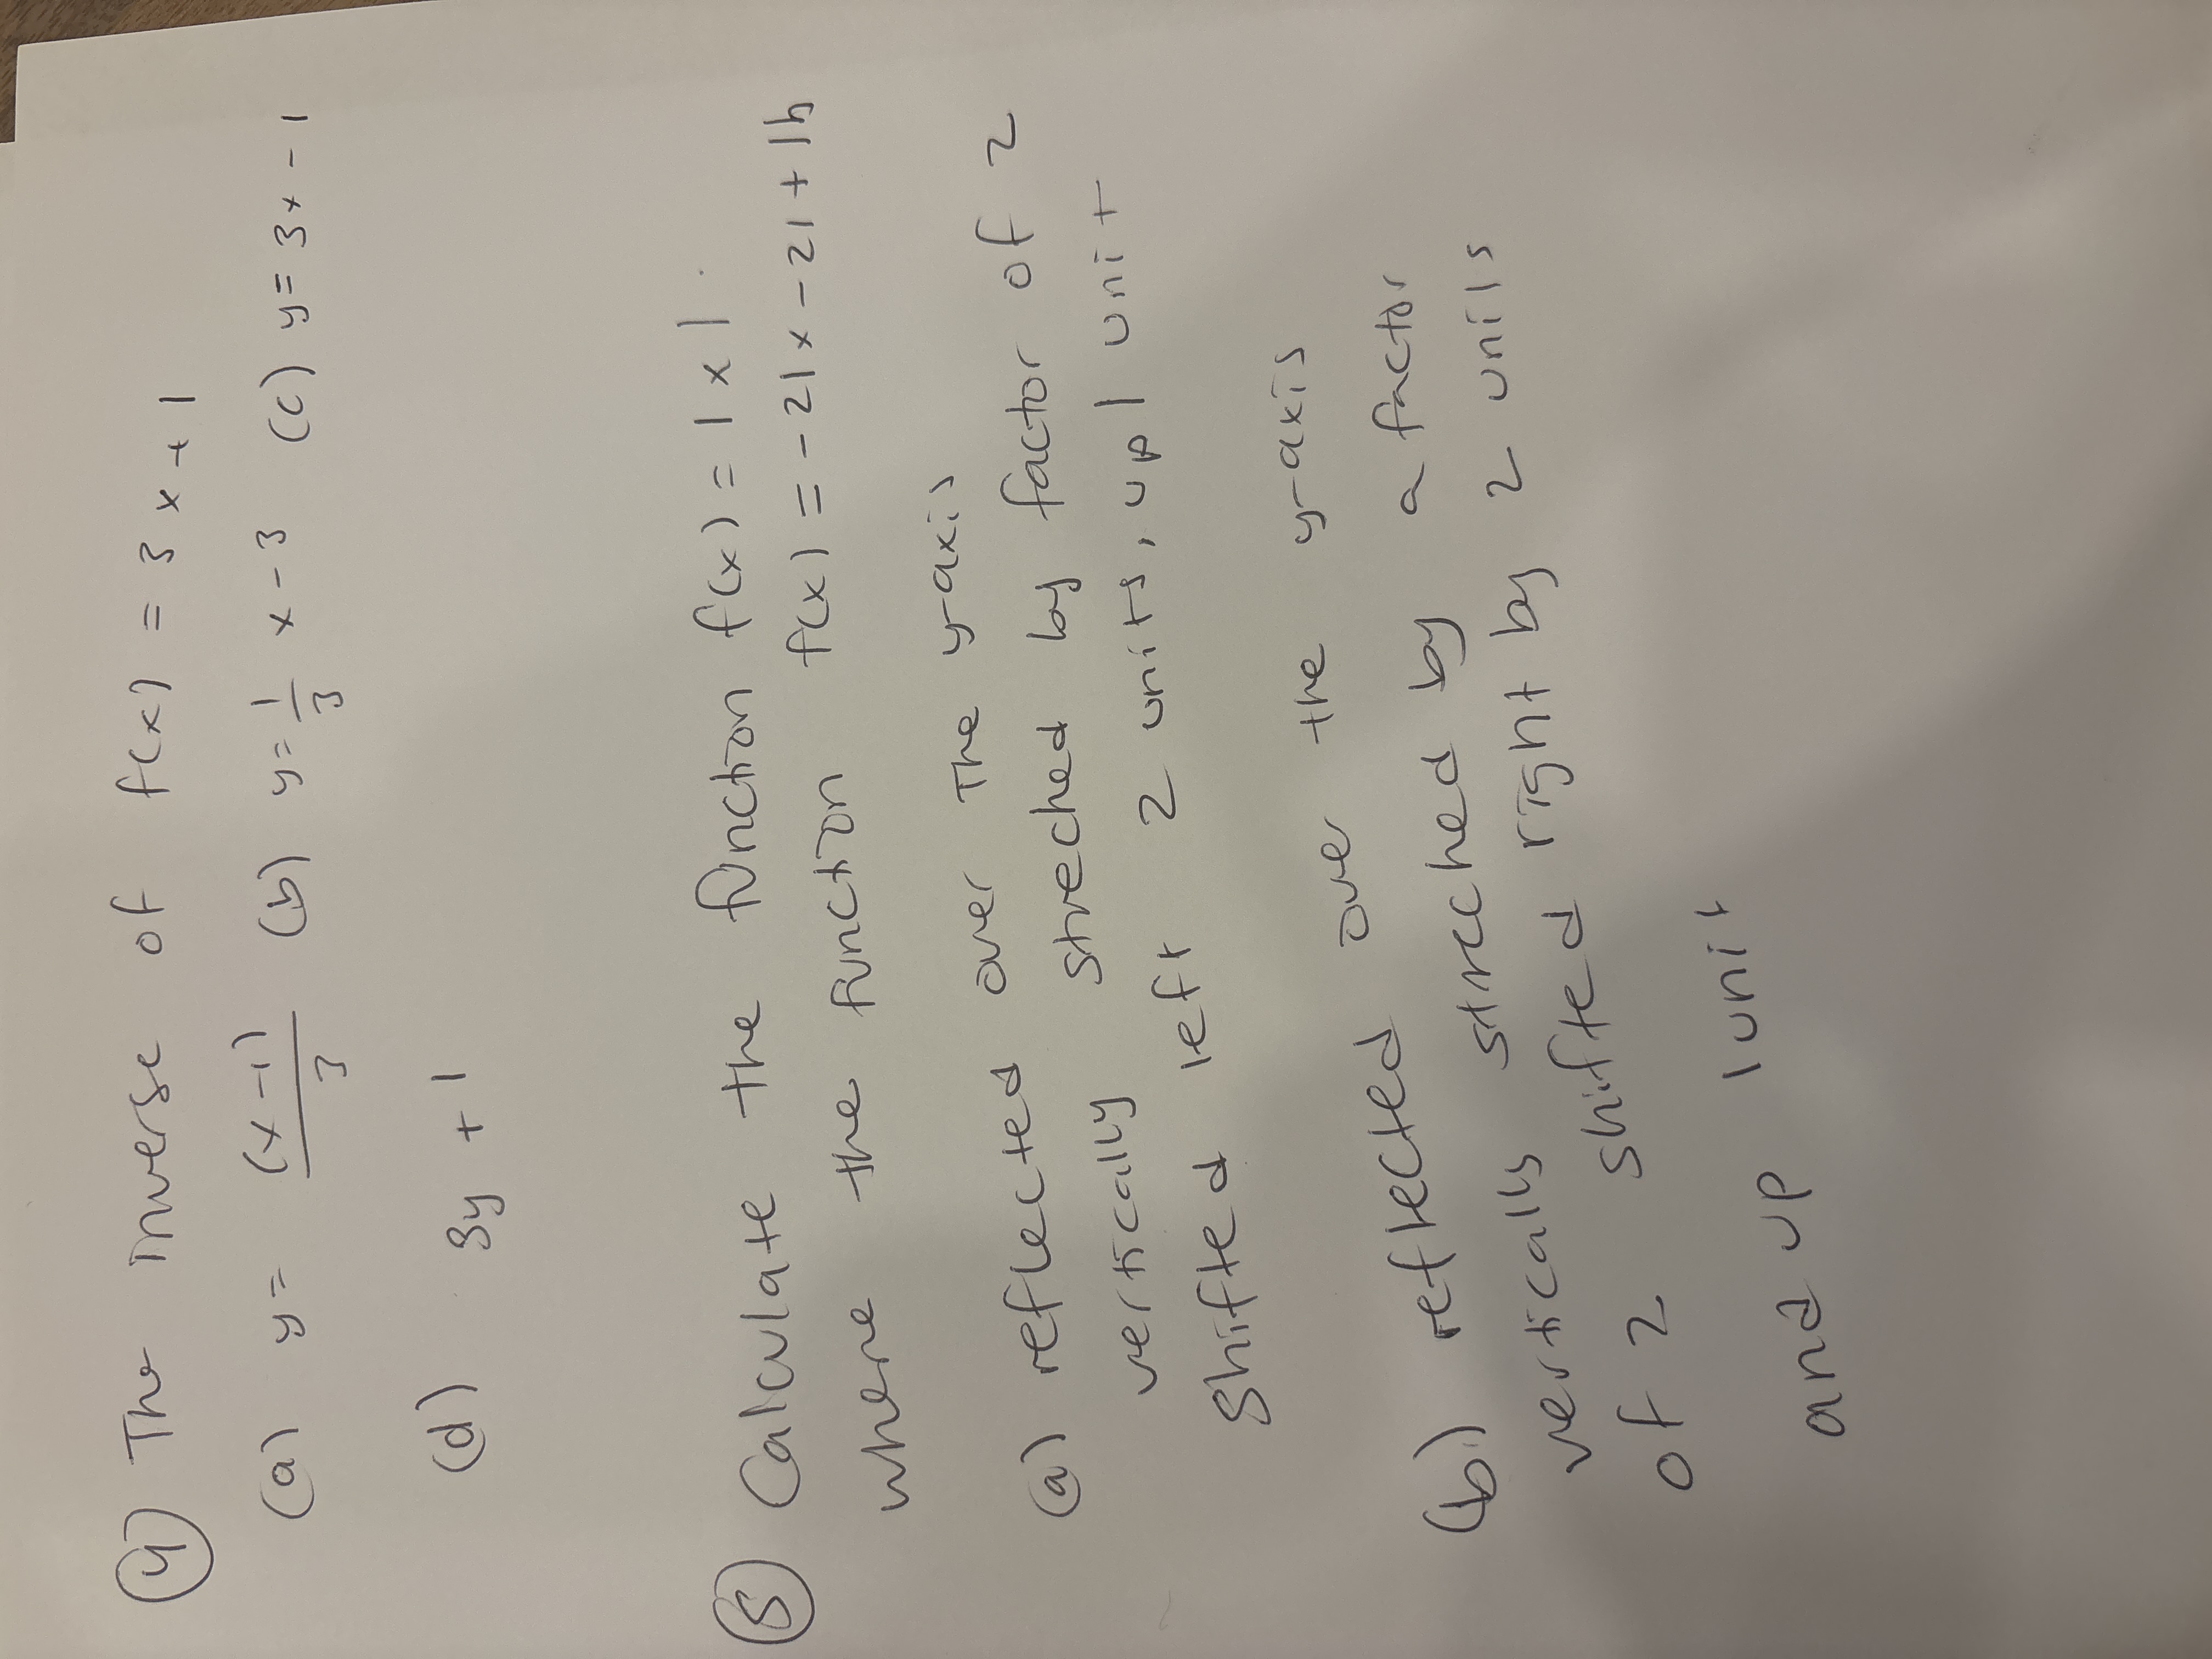 (4) The inverse of f(x) = 3x+1
(a) y = (x-1)/3 (b) y = 1/3 x - 3 (c) y = 3x - 1
(d) 3y + 1
(5) Calculate the function f(x) = |x|
where the function f(x) = -2|x-2|+1h
(a) reflected over the y-axis
vertically streched by factor of 2
shifted left 2 units, up 1 unit
(b) reflected over the y-axis
vertically streched by a factor
of 2 shifted right by 2 units
and up 1 unit